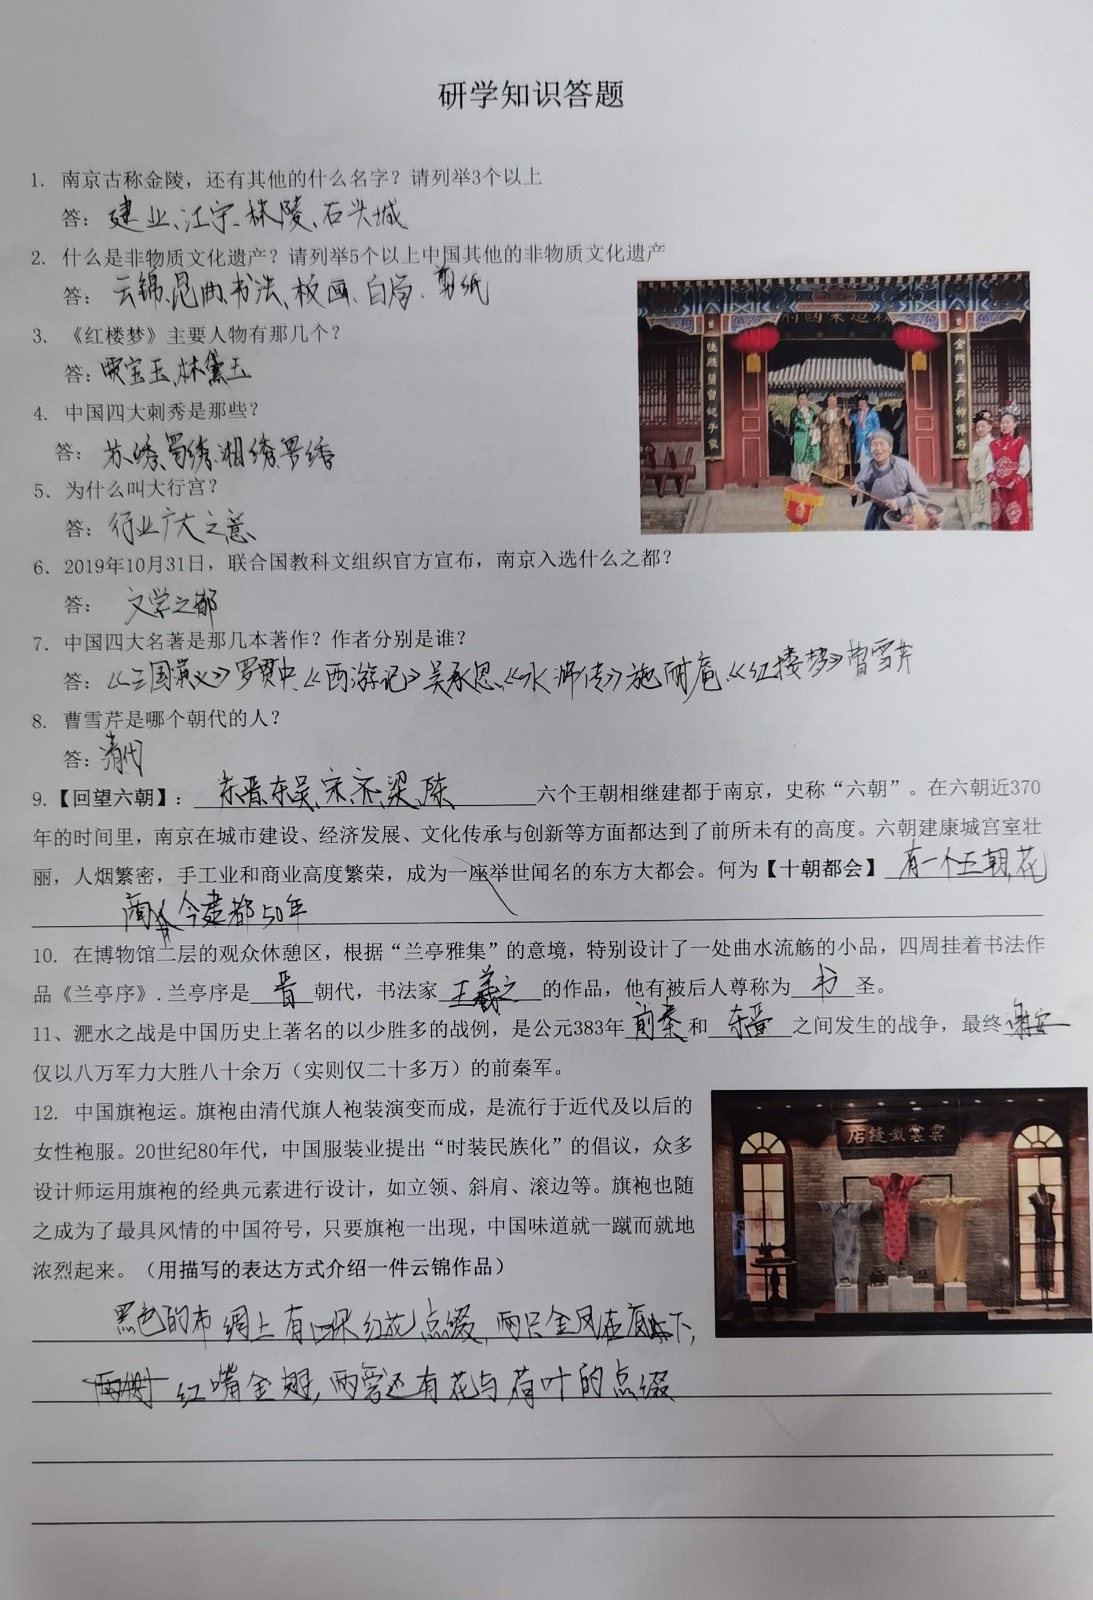 研学知识答题
1. 南京古称金陵，还有其他的什么名字？请列举3个以上
答：建业、江宁、秣陵、石头城
2. 什么是非物质文化遗产？请列举5个以上中国其他的非物质文化遗产
答：云锦、昆曲、书法、板画、白局、剪纸
3. 《红楼梦》主要人物有那几个？
答：贾宝玉、林黛玉
4. 中国四大刺秀是那些？
答：苏绣、蜀绣、湘绣、粤绣
5. 为什么叫大行宫？
答：行业广大之意
6. 2019年10月31日，联合国教科文组织官方宣布，南京入选什么之都？
答：文学之都
7. 中国四大名著是那几本著作？作者分别是谁？
答：《三国演义》罗贯中、《西游记》吴承恩、《水浒传》施耐庵、《红楼梦》曹雪芹
8. 曹雪芹是哪个朝代的人？
答：清代
9.【回望六朝】：东晋、东吴、宋、齐、梁、陈六个王朝相继建都于南京，史称“六朝”。在六朝近370
年的时间里，南京在城市建设、经济发展、文化传承与创新等方面都达到了前所未有的高度。六朝建康城宫室壮
丽，人烟繁密，手工业和商业高度繁荣，成为一座举世闻名的东方大都会。何为【十朝都会】有一个王朝花
今建都50年
10. 在博物馆二层的观众休憩区，根据“兰亭雅集”的意境，特别设计了一处曲水流觞的小品，四周挂着书法作
品《兰亭序》.兰亭序是晋朝代，书法家王羲之的作品，他有被后人尊称为书圣。
11、淝水之战是中国历史上著名的以少胜多的战例，是公元383年前秦和东晋之间发生的战争，最终谢安
仅以八万军力大胜八十余万（实则仅二十多万）的前秦军。
12. 中国旗袍运。旗袍由清代旗人袍装演变而成，是流行于近代及以后的
女性袍服。20世纪80年代，中国服装业提出“时装民族化”的倡议，众多
设计师运用旗袍的经典元素进行设计，如立领、斜肩、滚边等。旗袍也随
之成为了最具风情的中国符号，只要旗袍一出现，中国味道就一蹴而就地
浓烈起来。（用描写的表达方式介绍一件云锦作品）
黑色的布绸上有四朵红花点缀，两只金凤在底下，
红嘴金翅，两旁还有花与荷叶的点缀
店縫裁裳雲